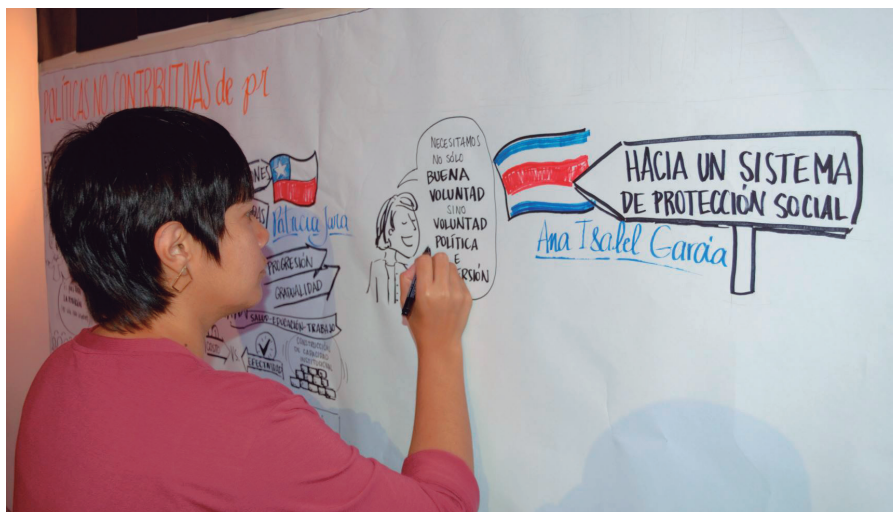 POLÍTICAS NO CONTRIBUTIVAS de pr
NES
Patricia Jara
PROGRESIÓN
GRADUALIDAD
SALUD-EDUCACIÓN-TRABAJO
EFECTIVIDAD
NECESITAMOS
NO SÓLO
BUENA
VOLUNTAD
SINO
VOLUNTAD
POLÍTICA
E
ERSIÓN
HACIA UN SISTEMA
DE PROTECCIÓN SOCIAL
Ana Isabel García